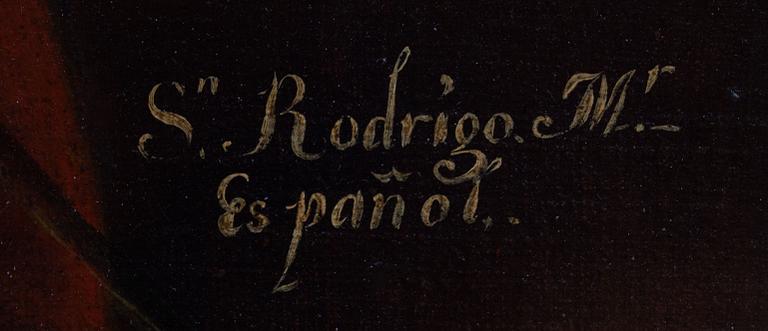 Sⁿ. Rodrigo. Mʳ.
Español.